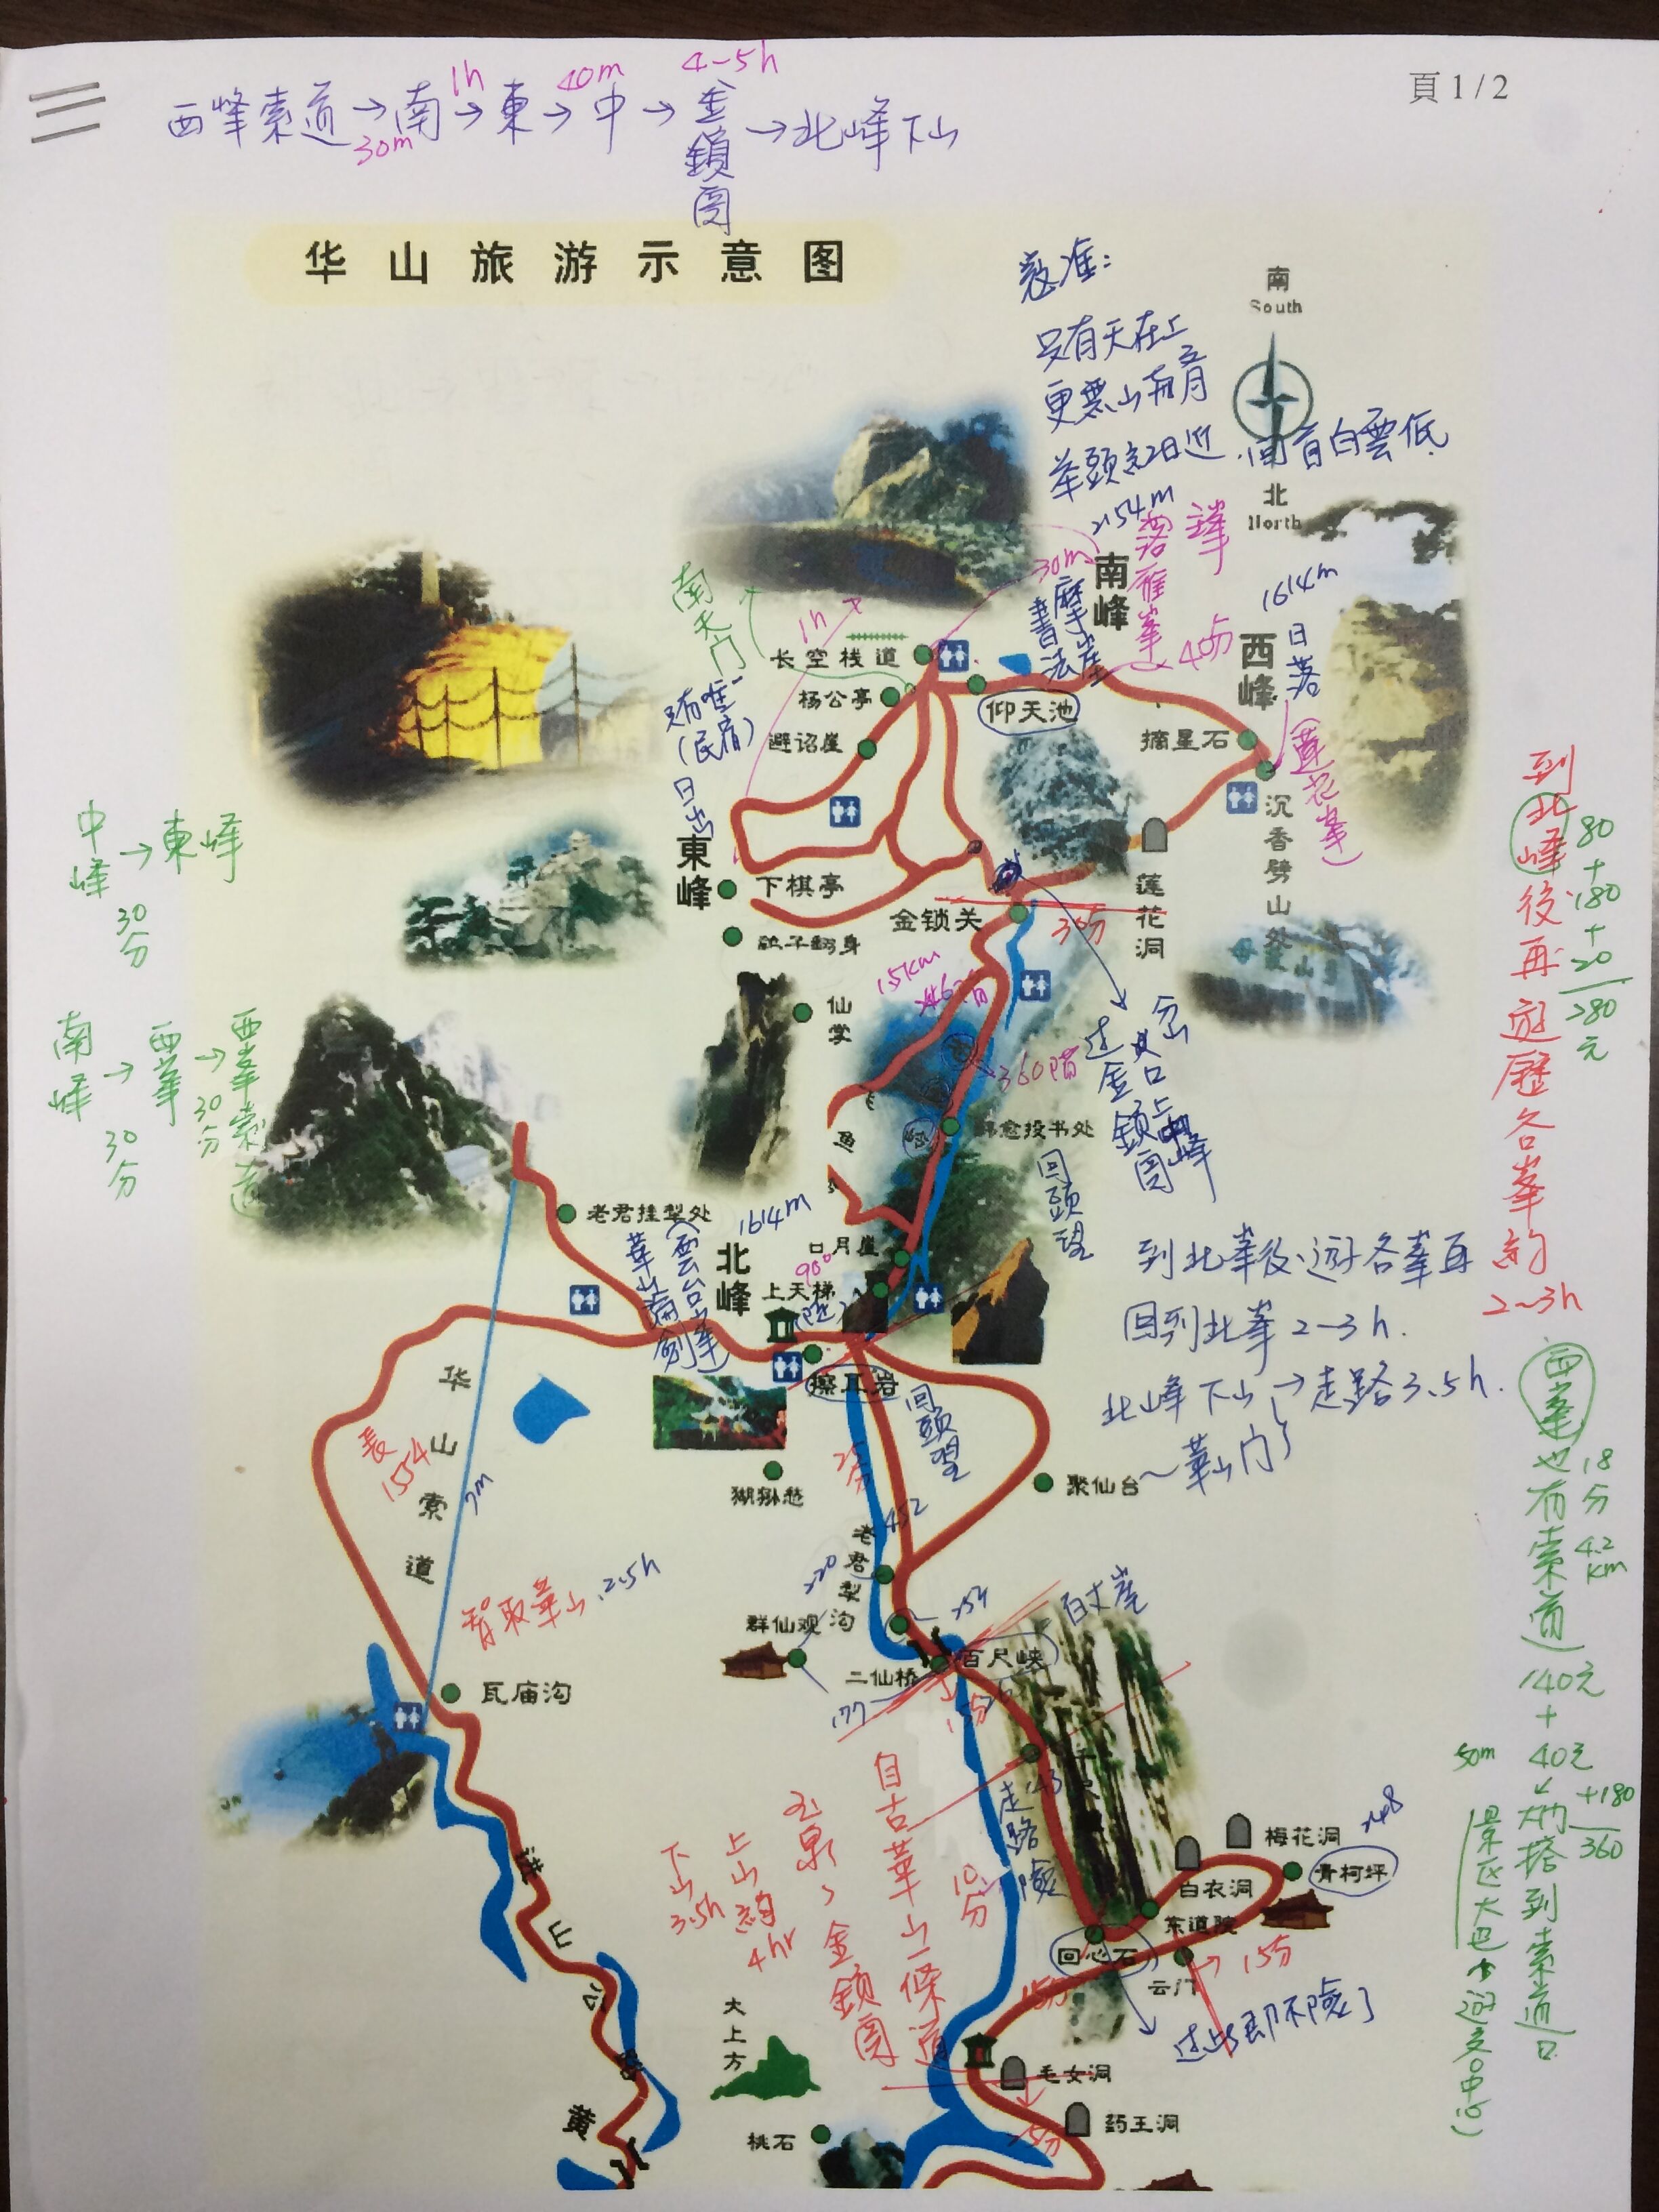 頁 1 / 2
西峰索道→南→東→中→金鎖関→北峰下山
30m
1h
40m
4-5h
华山旅游示意图
寇准:
只有天在上
更無山與齊
举頭紅日近.回首白雲低
南
South
北
North
2154m
南峰
落雁峯
30m
摩崖書法
40分
1614m
西峰
日落
(蓮花峯)
南天门
1h
长空栈道
杨公亭
仰天池
避诏崖
摘星石
只有唯一
(民宿)
日出
東峰
下棋亭
鹞子翻身
金锁关
35分
莲花洞
沉香劈山处
中峰→東峰
30分
南峰→西峯→西峯索道
30分
30分
仙掌
15km
360階
韩愈投书处
回頭望
过金鎖関
岔口上中峰
老君挂犁处
1614m
北峰
(雲台峯)
華山論劍
日月崖
90°
上天梯
(陡)
擦耳岩
回頭望
25分
到北峯後遊各峯再
回到北峯2-3h.
北峰下山→走路3.5h.
~華山门
到北峰後再遊歷各峯約
2~3h
80
+
180
+
20
280
元
华山索道
長1554
猢狲愁
聚仙台
452
老君犁沟
220
群仙观
254
二仙桥
百尺峡
百丈崖
177
15分
智取華山.2.5h
瓦庙沟
西峯也有索道
18分
4.2km
140元
+
40元
+180
360
50m
143
走路險
自古華山一條道
玉泉~金鎖関
上山約4hr
下山3.5h
10分
梅花洞
248
青柯坪
白衣洞
东道院
回心石
云门
15分
15分
过此即不險了
大上方
毛女洞
药王洞
25分
桃石
进山公路
黄